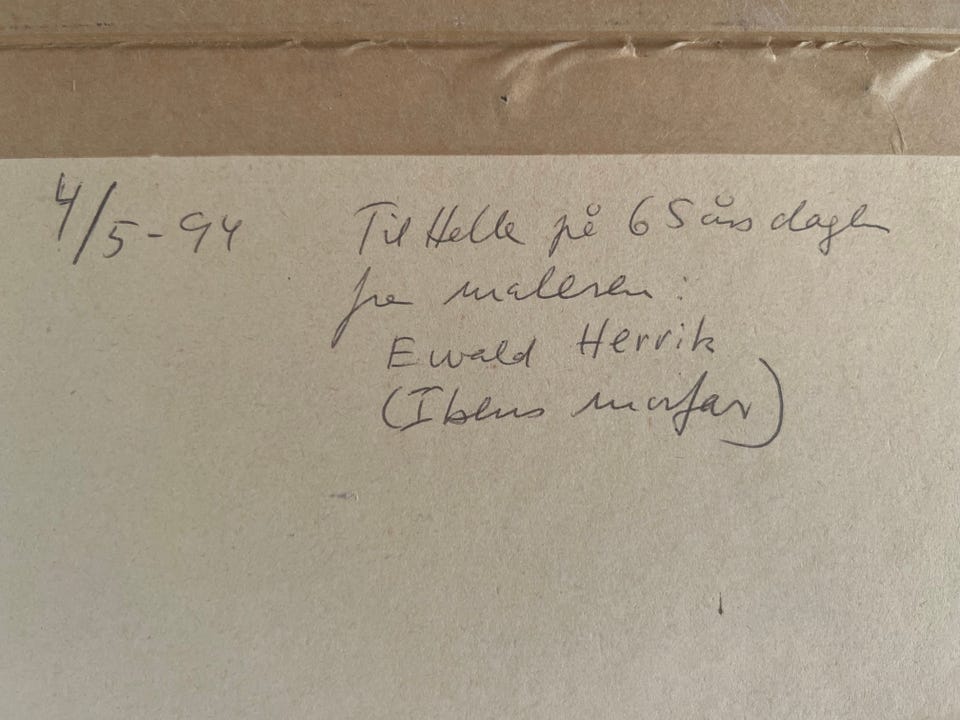 4/5-94 Til Helle på 65 års dagen
fra maleren:
Ewald Henrik
(Ibens morfar)